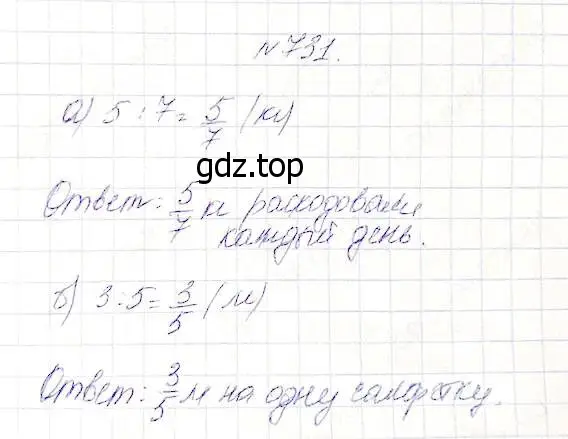 №731.
а) 5 : 7 = 5/7 (кг)
gdz.top
Ответ: 5/7 кг расходовали
каждый день.
б) 3 : 5 = 3/5 (м)
Ответ: 3/5 м на одну салфетку.